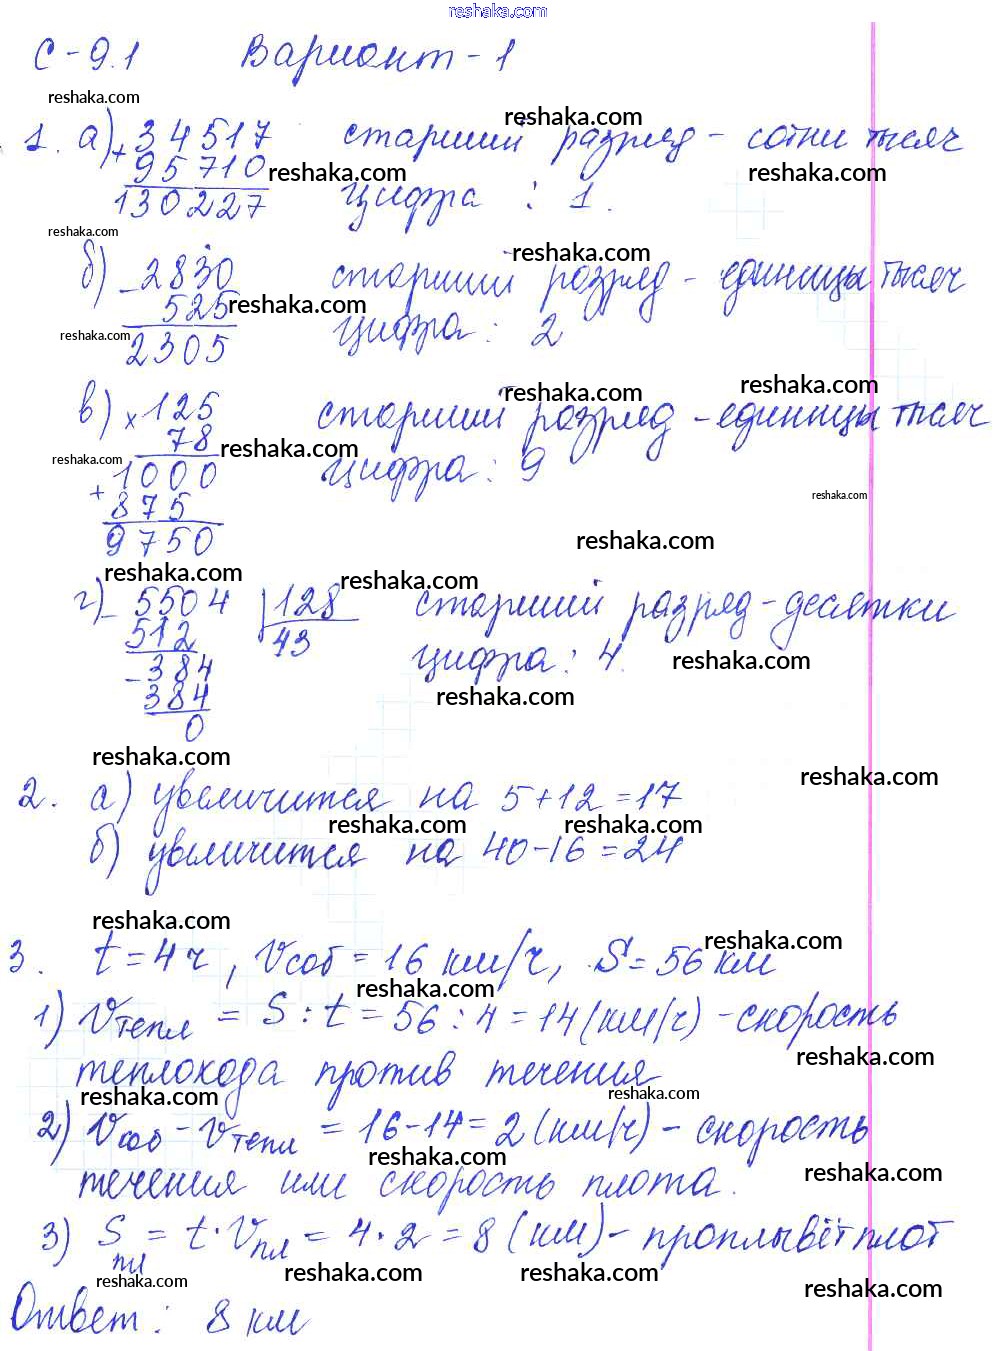 reshaka.com
С-9.1 Вариант-1
reshaka.com
reshaka.com
1. а) + 34517 старший разряд - сотни тысяч
95710 reshaka.com reshaka.com
130227 цифра : 1.
reshaka.com
reshaka.com
б) - 2830 старший разряд - единицы тысяч
525 reshaka.com
reshaka.com
2305 цифра : 2
reshaka.com
reshaka.com
в) × 125 старший разряд - единицы тысяч
78 reshaka.com
reshaka.com
1000 цифра : 9
reshaka.com
+ 875
9750 reshaka.com
reshaka.com reshaka.com
г) - 5504 | 128 старший разряд - десятки
512 43 цифра : 4.
- 384 reshaka.com
384 reshaka.com
0
reshaka.com
reshaka.com
2. а) увеличится на 5+12=17
reshaka.com reshaka.com
б) увеличится на 40-16=24
reshaka.com
reshaka.com
3. t=4ч, Vсоб=16 км/ч, S=56 км
reshaka.com
1) Vтепл = S : t = 56 : 4 = 14 (км/ч) - скорость
reshaka.com
теплохода против течения
reshaka.com reshaka.com
2) Vсоб - Vтепл = 16-14 = 2 (км/ч) - скорость
reshaka.com
reshaka.com
течения или скорость плота.
3) Sпл = t · Vпл = 4 · 2 = 8 (км) - проплывёт плот
reshaka.com reshaka.com reshaka.com
reshaka.com
Ответ : 8 км